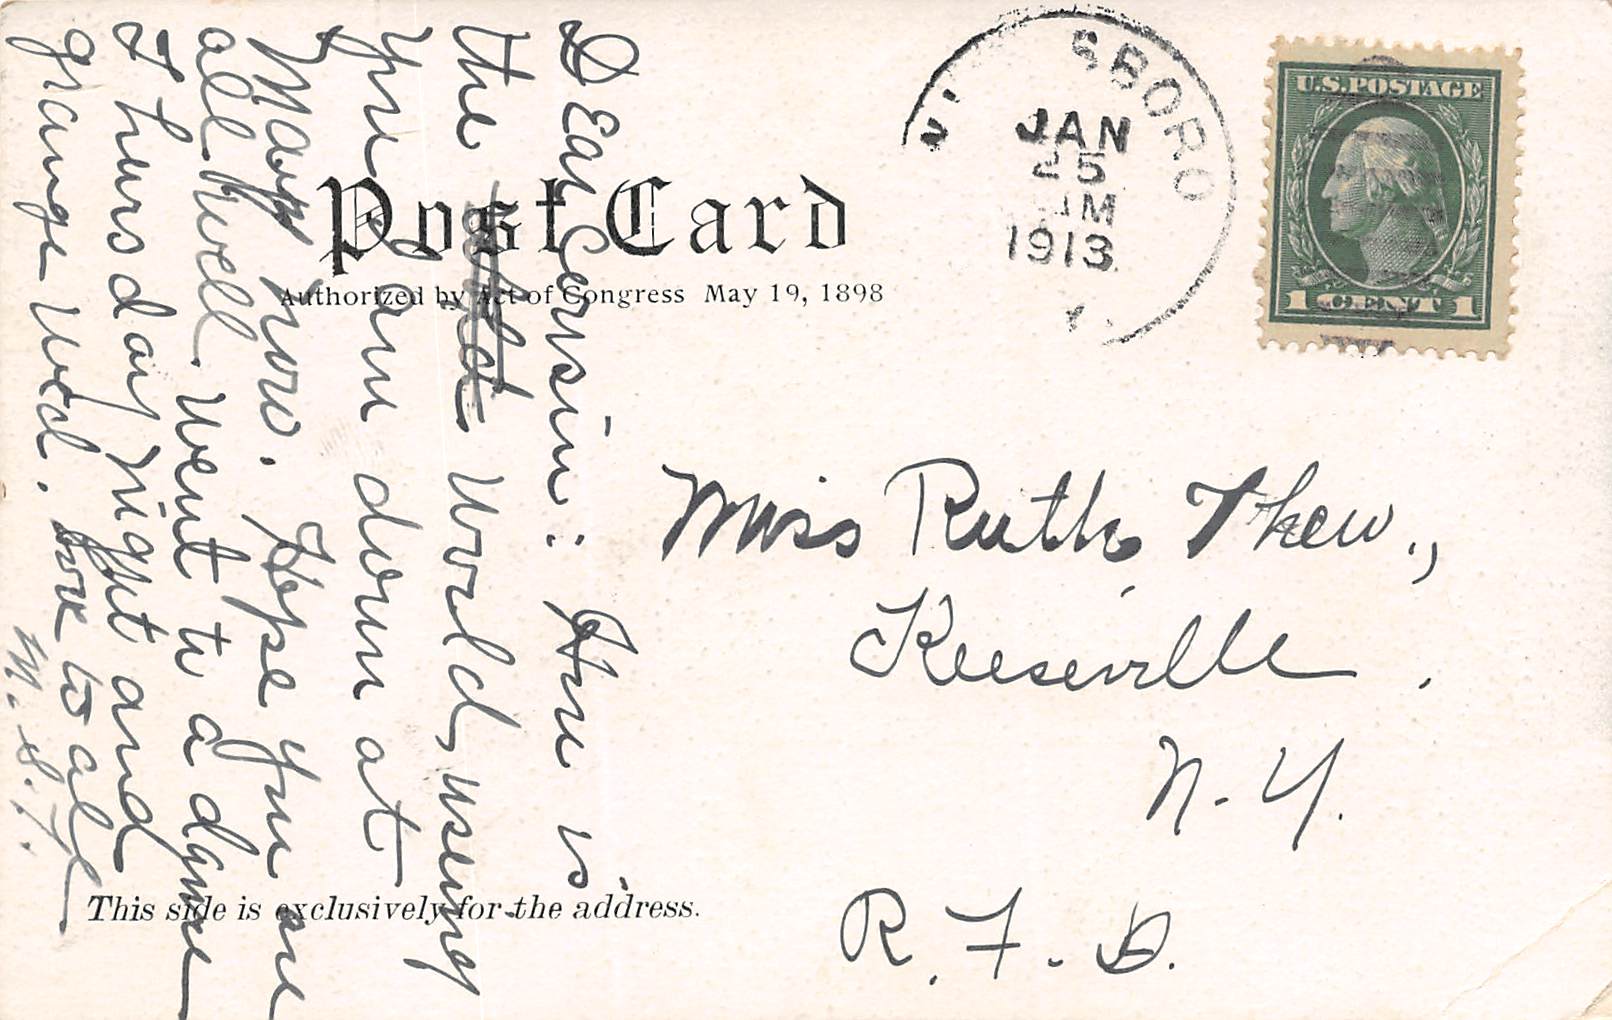 Post Card
Authorized by Act of Congress May 19, 1898
SBORO
JAN
25
M
1913
U.S. POSTAGE
1 CENT 1
Dear Cousin: How is
the World, useing
you I am down at
Mays now. Hope you are
all well. Went to a dance
Thursday night and
grange Wed. Love to all
M. S. T.
Miss Ruth Thew.,
Keeseville.
N. Y.
R. F. D.
This side is exclusively for the address.